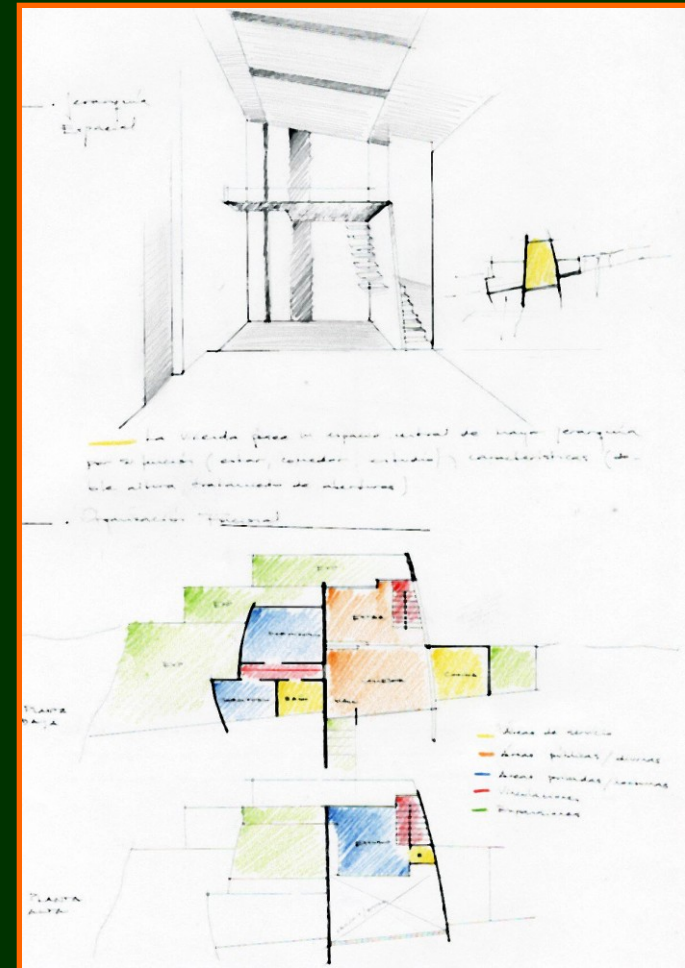 Jerarquía
Espacial
La vivienda posee un espacio central de mayor jerarquía
por su función (estar, comedor, estudio) y características (do-
ble altura, tratamiento de aberturas)
Organización Funcional
EXP
EXP
EXP
DORMITORIO
ESTAR
COMEDOR
COCINA
DORMITORIO
BAÑO
HALL
PLANTA
BAJA
Áreas de servicio
Áreas públicas/diurnas
Áreas privadas/nocturnas
Circulaciones
Expansiones
ESTUDIO
PLANTA
ALTA